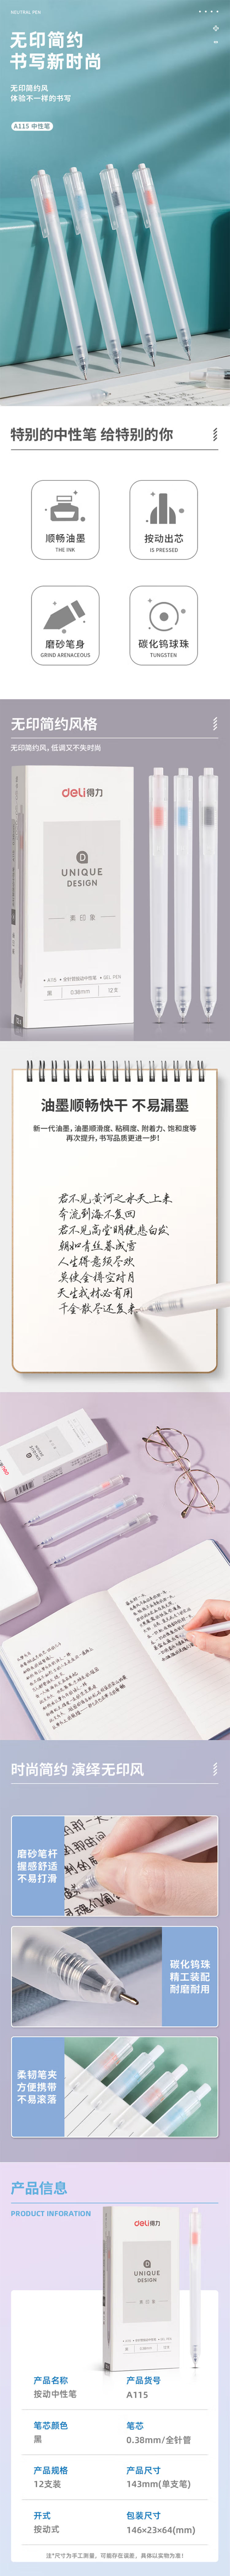 NEUTRAL PEN
无印简约
书写新时尚
无印简约风
体验不一样的书写
A115 中性笔
特别的中性笔 给特别的你
顺畅油墨
THE INK
按动出芯
IS PRESSED
磨砂笔身
GRIND ARENACEOUS
碳化钨球珠
TUNGSTEN
无印简约风格
无印简约风, 低调又不失时尚
deli得力
UNIQUE
DESIGN
素印象
黑
0.38mm
12支
油墨顺畅快干 不易漏墨
新一代油墨, 油墨顺滑度、粘稠度、附着力、饱和度等
再次提升, 书写品质更进一步!
君不见黄河之水天上来
奔流到海不复回
君不见高堂明镜悲白发
朝如青丝暮成雪
人生得意须尽欢
莫使金樽空对月
天生我材必有用
千金散尽还复来
时尚简约 演绎无印风
磨砂笔杆
握感舒适
不易打滑
碳化钨珠
精工装配
耐磨耐用
柔韧笔夹
方便携带
不易滚落
产品信息
PRODUCT INFORATION
deli得力
UNIQUE
DESIGN
素印象
产品名称
按动中性笔
产品货号
A115
笔芯颜色
黑
笔芯
0.38mm/全针管
产品规格
12支装
产品尺寸
143mm(单支笔)
开式
按动式
包装尺寸
146×23×64(mm)
注*尺寸为手工测量, 可能存在误差, 具体以实物为准!